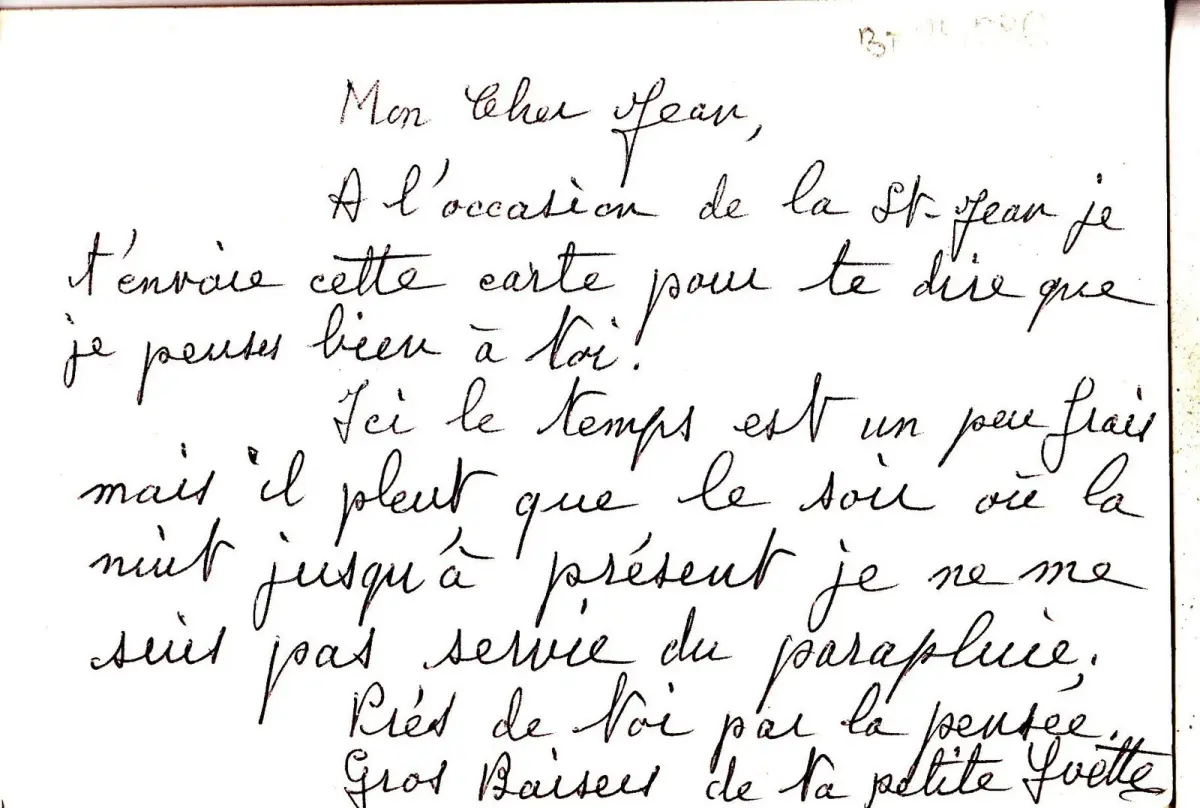 Mon Cher Jean,
A l'occasion de la St-Jean je
t'envoie cette carte pour te dire que
je penses bien à toi.
Ici le temps est un peu frais
mais il pleut que le soir où la
nuit jusqu'à présent je ne me
suis pas servie du parapluie.
Prés de toi par la pensée.
Gros Baisers de ta petite Yvette